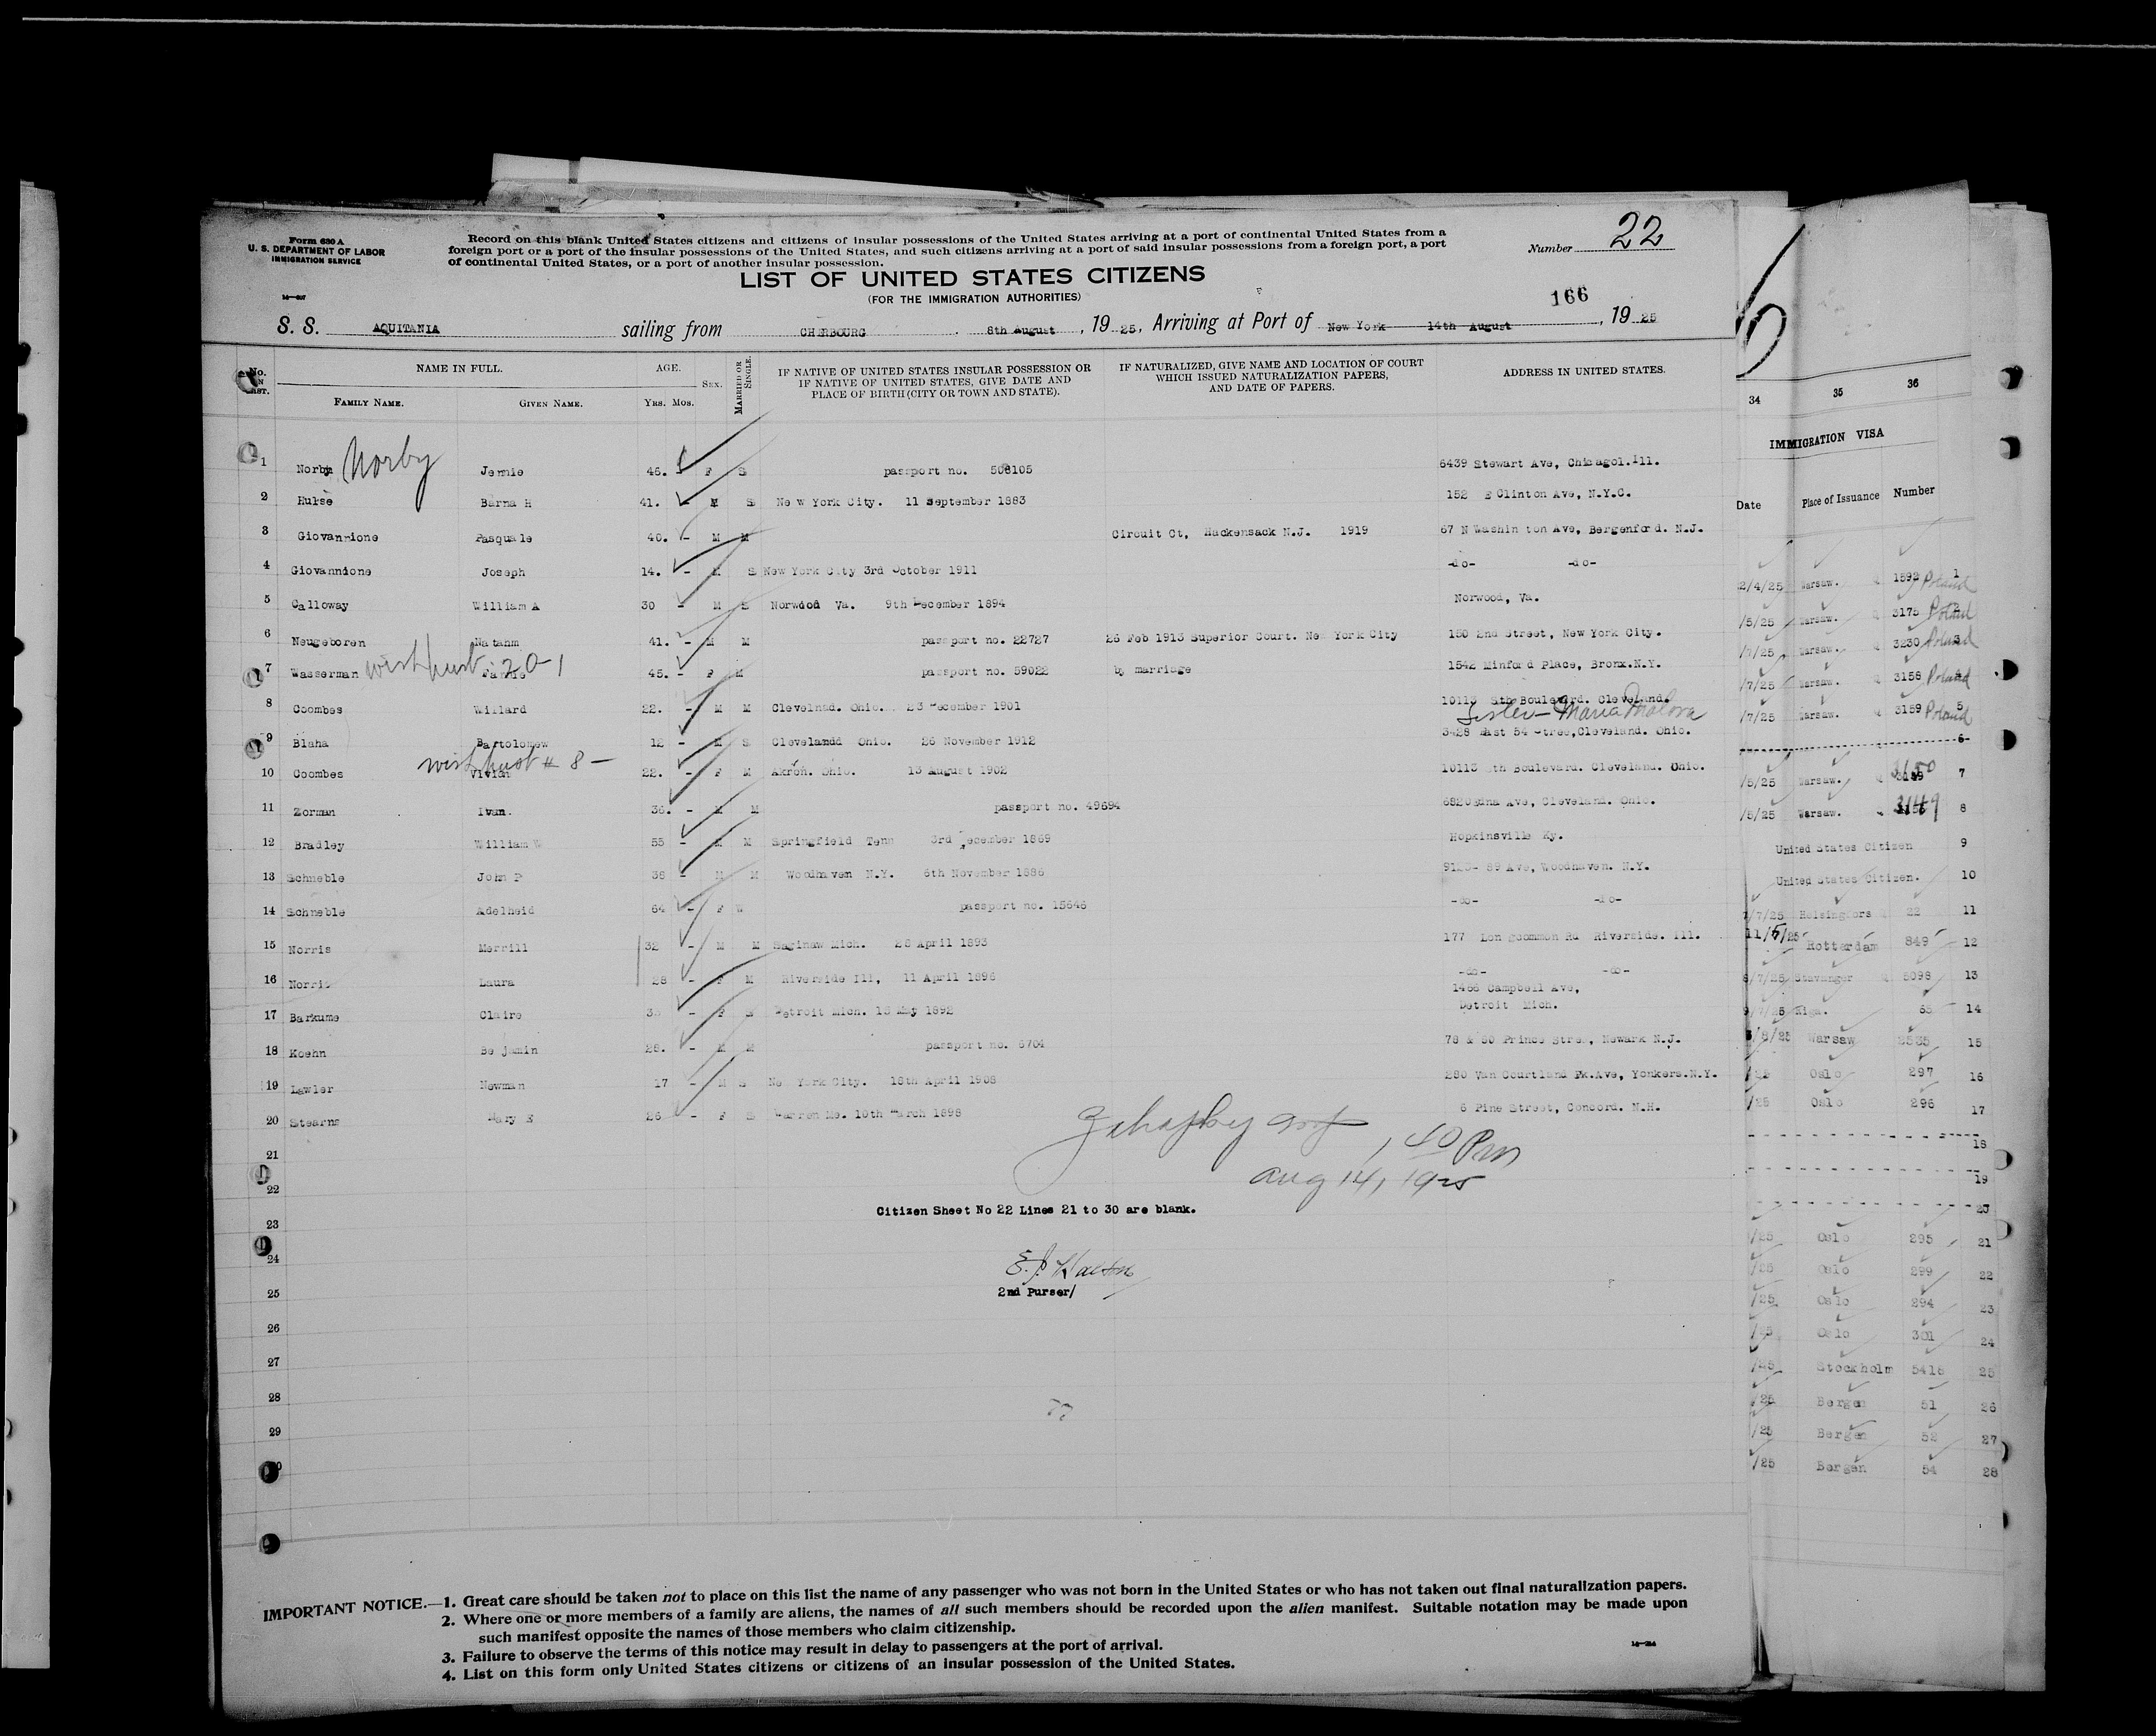 Form 630 A
U. S. DEPARTMENT OF LABOR
IMMIGRATION SERVICE
Record on this blank United States citizens and citizens of insular possessions of the United States arriving at a port of continental United States from a
foreign port or a port of the insular possessions of the United States, and such citizens arriving at a port of said insular possessions from a foreign port, a port
of continental United States, or a port of another insular possession.
Number 22
LIST OF UNITED STATES CITIZENS
(FOR THE IMMIGRATION AUTHORITIES)
166
S. S. AQUITANIA sailing from CHERBOURG . 8th August , 19 25, Arriving at Port of New York 14th August , 19 25
No. NAME IN FULL. AGE. SEX. MARRIED OR SINGLE. IF NATIVE OF UNITED STATES INSULAR POSSESSION OR IF NATIVE OF UNITED STATES, GIVE DATE AND PLACE OF BIRTH (CITY OR TOWN AND STATE). IF NATURALIZED, GIVE NAME AND LOCATION OF COURT WHICH ISSUED NATURALIZATION PAPERS, AND DATE OF PAPERS. ADDRESS IN UNITED STATES.
FAMILY NAME. GIVEN NAME. YRS. MOS.
1 Norby Norby Jennie 46. - F S passport no. 508105 6439 Stewart Ave, Chicagol.Ill.
2 Hulse Barna H 41. - M S New York City. 11 September 1883 152 E Clinton Ave, N.Y.C.
3 Giovannione Pasquale 40. - M M Circuit Ct, Hackensack N.J. 1919 67 N Washin ton Ave, Bergenford. N.J.
4 Giovannione Joseph 14. - M S New York City 3rd October 1911 -do- -do-
5 Calloway William A 30 - M S Norwood Va. 9th December 1894 Norwood, Va.
6 Neugeboren Natahm 41. - M M passport no. 22727 26 Feb 1913 Superior Court. New York City 150 2nd Street, New York City.
7 Wasserman Fannie 45. - F M passport no. 59022 by marriage 1542 Minford Place, Bronx.N.Y.
8 Coombes Willard 22. - M M Clevelnad. Ohio. 23 December 1901 10113 Sth Boulevard. Cleveland.
Sister - Maria
9 Blaha Bartolomew 12 - M S Clevelandd Ohio. 26 November 1912 3428 East 54 Stree,Cleveland. Ohio.
10 Coombes Vivian 22. - F M Akron. Ohio. 13 August 1902 10113 Sth Boulevard. Cleveland. Ohio.
11 Zorman Ivan. 36. - M M passport no. 49694 6820 Edna Ave, Cleveland. Ohio.
12 Bradley William W 55 - M M Springfield Tenn 3rd December 1869 Hopkinsville Ky.
13 Schneble John P 38 - M M Woodhaven N.Y. 6th November 1886 9123- 89 Ave, Woodhaven. N.Y.
14 Schneble Adelheid 64 - F W passport no. 15646 -do- -do-
15 Norris Merrill 32 - M M Saginaw Mich. 28 April 1893 177 Longcommon Rd Riverside. Ill.
16 Norris Laura 28 - F M Riverside Ill, 11 April 1896 -do- -do-
17 Barkume Claire 33 - F S Detroit Mich. 13 May 1892 1466 Campbell Ave, Detroit Mich.
18 Koehn Be jamin 28. - M M passport no. 6704 78 & 80 Prince Stree, Newark N.J.
19 Lawler Newman 17 - M S New York City. 18th April 1908 280 Van Courtland Pk.Ave, Yonkers.N.Y.
20 Stearns Mary E 26 - F S Warren Me. 10th March 1898 6 Pine Street, Concord. N.H.
21
1,40 Pm
22
Aug 14, 1925
Citizen Sheet No 22 Lines 21 to 30 are blank.
23
24
25
2nd Purser/
26
27
28
29
IMPORTANT NOTICE.—1. Great care should be taken not to place on this list the name of any passenger who was not born in the United States or who has not taken out final naturalization papers.
2. Where one or more members of a family are aliens, the names of all such members should be recorded upon the alien manifest. Suitable notation may be made upon
such manifest opposite the names of those members who claim citizenship.
3. Failure to observe the terms of this notice may result in delay to passengers at the port of arrival.
4. List on this form only United States citizens or citizens of an insular possession of the United States.
34 35 36
IMMIGRATION VISA
Date Place of Issuance Number
2/4/25 Warsaw. 1592 Poland 1
/5/25 Warsaw. 3175 Poland
/7/25 Warsaw. 3230 Poland 3
/7/25 Warsaw. 3158 Poland
/7/25 Warsaw. 3159 Poland 5
6
/5/25 Warsaw. 3150 7
/5/25 Warsaw. 3149 8
United States Citizen 9
United States Citizen. 10
7/7/25 Helsingfors 22 11
11/5/25 Rotterdam 849 12
8/7/25 Stavanger 5098 13
9/7/25 Riga. 85 14
3/8/25 Warsaw 2535 15
/25 Oslo 297 16
/25 Oslo 296 17
18
19
20
/25 Oslo 295 21
/25 Oslo 299 22
/25 Oslo 294 23
/25 Oslo 301 24
/25 Stockholm 5418 25
/25 Bergen 51 26
/25 Bergen 52 27
/25 Bergen 54 28